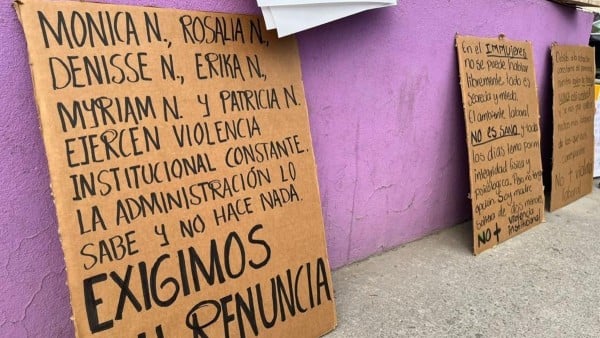 MONICA N., ROSALIA N.,
DENISSE N., ERIKA N.,
MYRIAM N. Y PATRICIA N.
EJERCEN VIOLENCIA
INSTITUCIONAL CONSTANTE.
LA ADMINISTRACIÓN LO
SABE Y NO HACE NADA.
EXIGIMOS
SU RENUNCIA
En el IMMUJERES
no se puede hablar
libremente, todo es
secrecía y miedo.
El ambiente laboral
NO ES SANO y todo
los días temo por mi
integridad física y
psicológica. Pero no tengo
opción. Soy madre
soltera de dos menores
NO + violencia
institucional